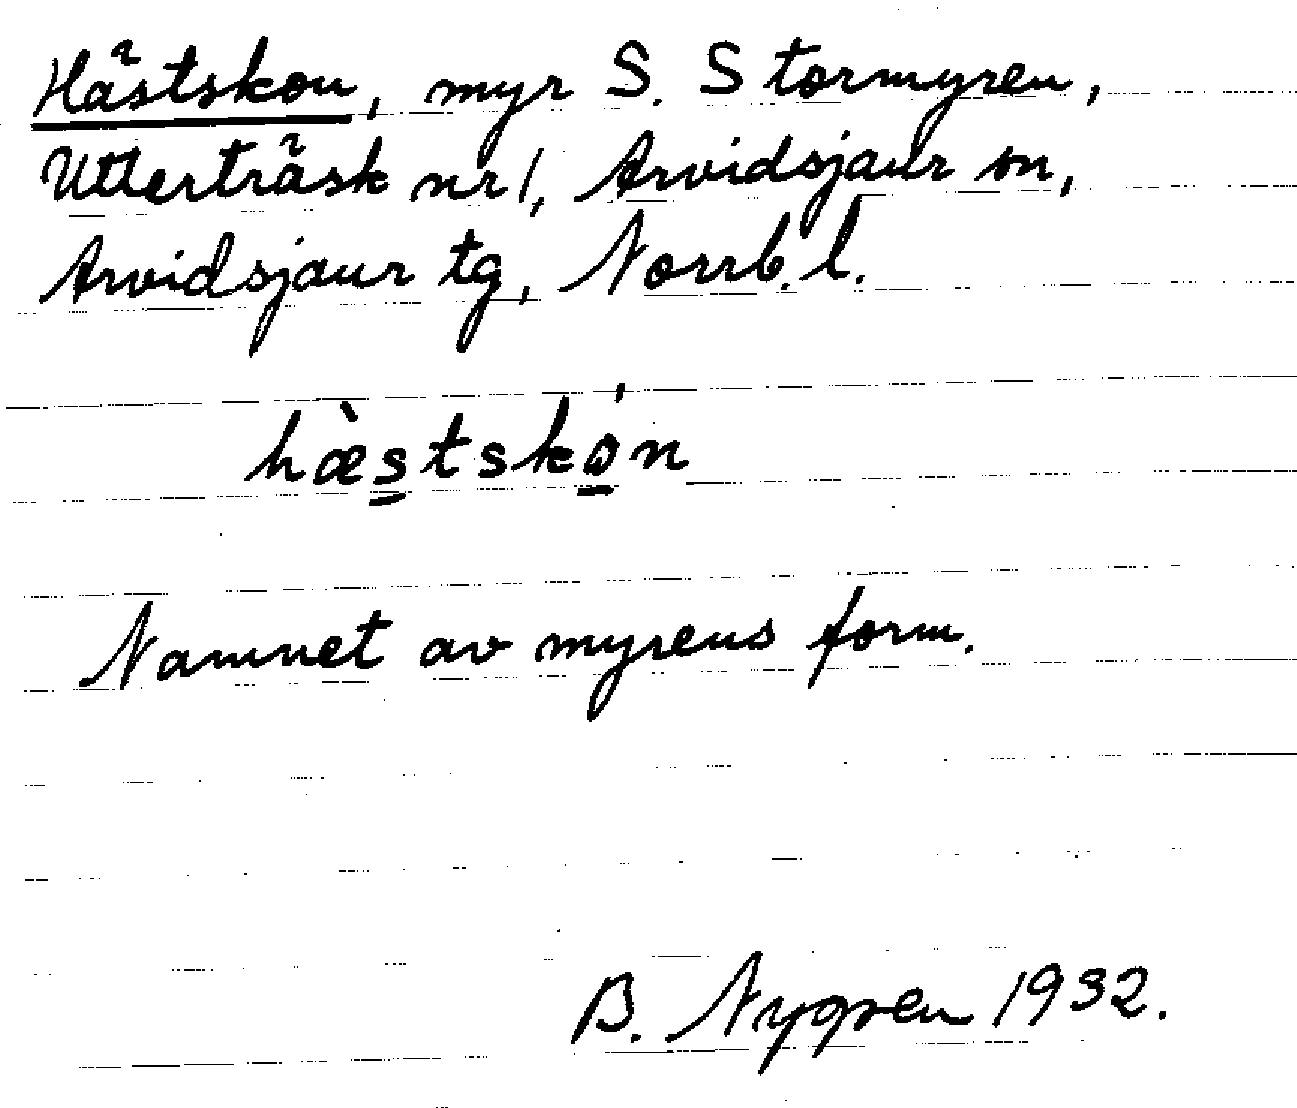 Hästskon, myr S. Stormyren,
Utterträsk nr 1, Arvidsjaur sn,
Arvidsjaur tg, Norrb. l.
hæ̀s̲tskǿ̲n
Namnet av myrens form.
B. Nygren 1932.